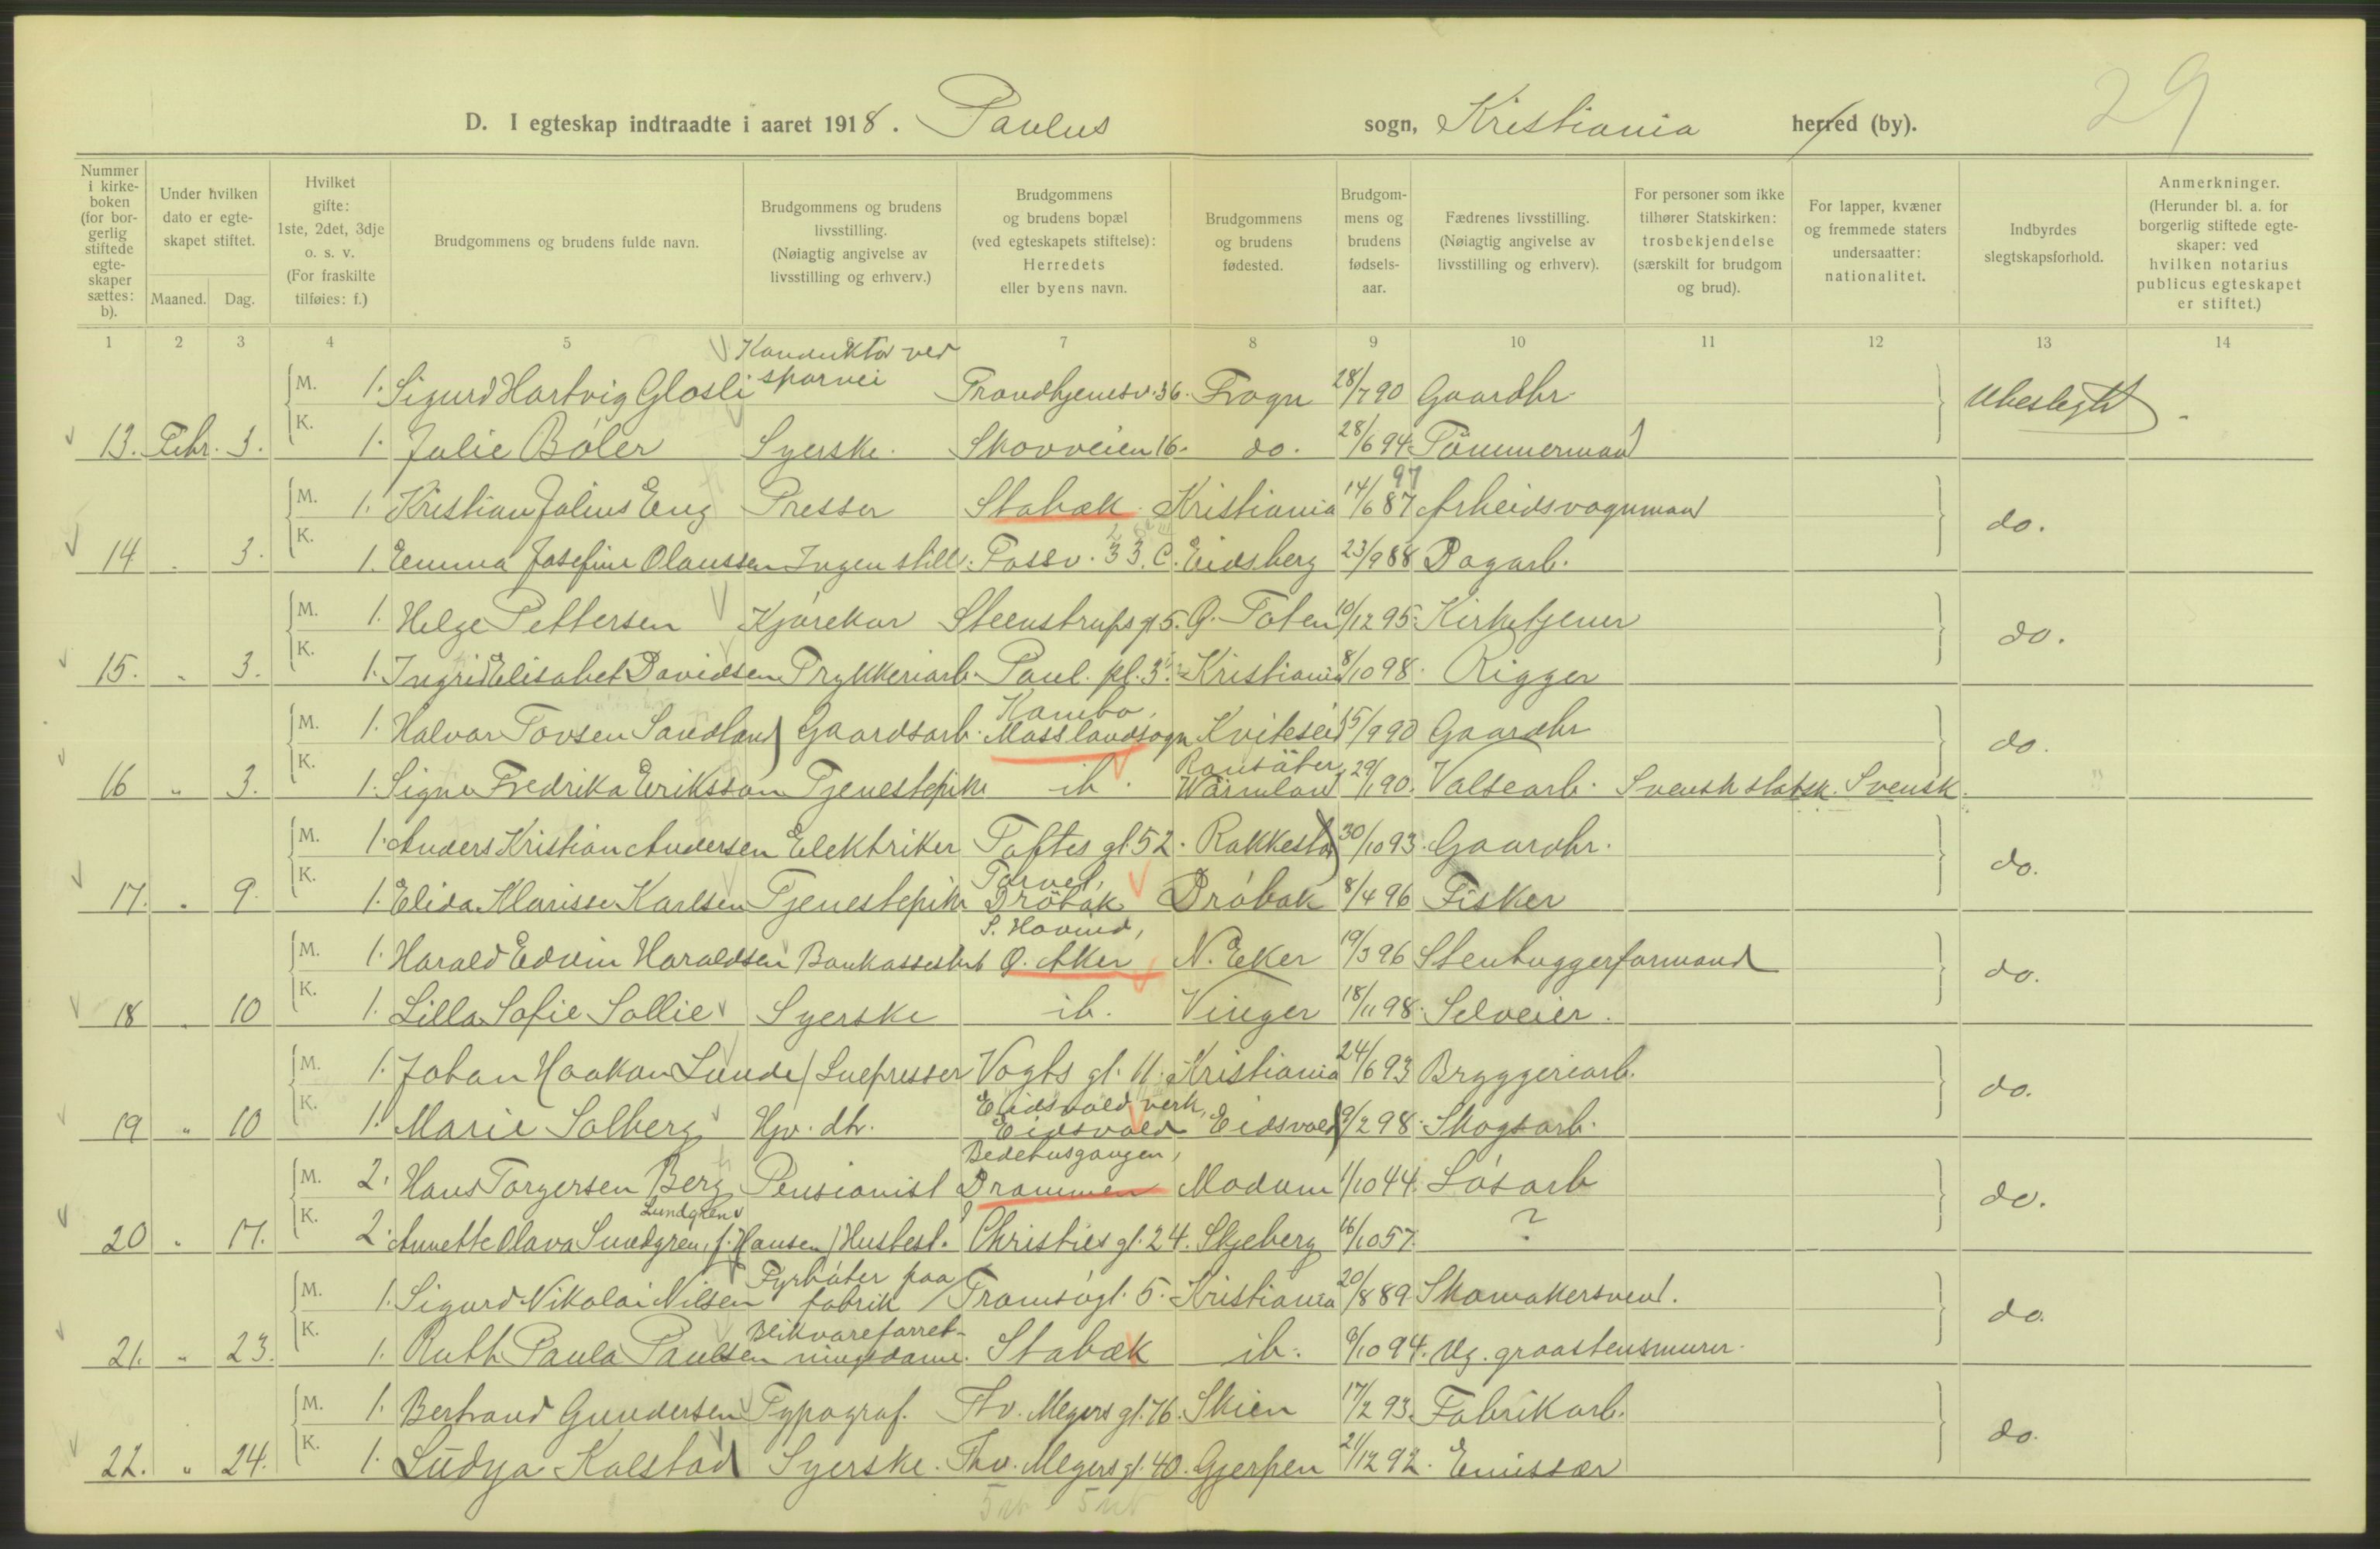 29
D. I egteskap indtraadte i aaret 1918. Paulus sogn, Kristiania herred (by).
Nummer i kirkeboken (for borgerlig stiftede egteskaper sættes: b).
Under hvilken dato er egteskapet stiftet.
Maaned. Dag.
Hvilket gifte: 1ste, 2det, 3dje o. s. v. (For fraskilte tilføies: f.)
Brudgommens og brudens fulde navn.
Brudgommens og brudens livsstilling. (Nøiagtig angivelse av livsstilling og erhverv.)
Brudgommens og brudens bopæl (ved egteskapets stiftelse): Herredets eller byens navn.
Brudgommens og brudens fødested.
Brudgommens og brudens fødselsaar.
Fædrenes livsstilling. (Nøiagtig angivelse av livsstilling og erhverv).
For personer som ikke tilhører Statskirken: trosbekjendelse (særskilt for brudgom og brud).
For lapper, kvæner og fremmede staters undersaatter: nationalitet.
Indbyrdes slegtskapsforhold.
Anmerkninger. (Herunder bl. a. for borgerlig stiftede egteskaper: ved hvilken notarius publicus egteskapet er stiftet.)
1 2 3 4 5 7 8 9 10 11 12 13 14
Konduktør ved
M. 1. Sigurd Hartvig Glosli sporvei Trondhjemsv. 36. Frogn 28/7 90 Gaardbr. Ubeslegtet
13. Febr. 3. K. 1. Julie Bøler Syerske. Skovveien 16. do. 28/6 94 Tømmermand
97
M. 1. Kristian Julius Eng Presser Stabæk Kristiania 14/6 87 Arbeidsvognmand do.
14 " 3. K. 1. Emma Josefine Olaussen Ingen still. Fossv. 33. C. Eidsberg 23/9 88 Dagarb.
M. 1. Helge Pettersen Kjørekar Steenstrups gt 5. Ø. Toten 10/12 95 Kirketjener do.
15. " 3. K. 1. Ingrid Elisabet Davidsen Trykkeriarb. Paul. pl. 3 Kristiania 8/10 98. Rigger
Kambo,
M. 1. Halvor Tovsen Sandland Gaardsarb. Mosslandsogn Kviteseid 15/9 90 Gaardbr do.
Ransäter,
16 " 3. K. 1. Signe Fredrika Eriksson Tjenestepike ib. Wärmland 29/1 90. Valsearb. Svensk statsk. Svensk.
M. 1. Anders Kristian Andersen Elektriker Toftes gt. 52. Rakkestad 30/10 93. Gaardbr. do.
Torvet,
17. " 9. K. 1. Elida Klarisse Karlsen Tjenestepike Drøbak Drøbak 8/4 96 Fisker
S. Hovind,
M. 1. Harald Edvin Haraldsen Bankassistent Ø. Aker N. Eker 19/3 96 Stenhuggerformand do.
18 " 10 K. 1. Lilla Sofie Sollie Syerske ib. Vinger 18/11 98. Selveier.
M. 1. Johan Haakon Lunde Luepresser Vogts gt. 11. Kristiania 24/6 93 Bryggeriarb. do.
Eidsvold verk,
19 " 10 K. 1. Marie Solberg Hjv. dtr. Eidsvold Eidsvold 9/2 98. Skogsarb.
Bedehusgangen,
M. 2. Hans Torgersen Berg Pensionist Drammen Modum 1/10 44. Løsarb do.
Lundgren
20 " 17. K. 2. Annette Olava Lundgren, f. Hansen Husbest. Christies gt. 24. Skjeberg 16/10 57. ?
Fyrbøter paa
M. 1. Sigurd Nikolai Nilsen fabrik Tromsøgt. 5. Kristiania 20/8 89 Skomakersvend. do.
Blikvareforret-
21. " 23. K. 1. Ruth Paula Paulsen ningsdame. Stabæk ib. 6/10 94. Ug. graastensmurer.
M. 1. Bertrand Gundersen Typograf. Thv. Meyers gt. 76. Skien 17/2 93. Fabrikarb. do.
22. " 24. K. 1. Lüdya Kolstad Syerske. Thv. Meyers gt. 40. Gjerpen 21/12 92. Emissær